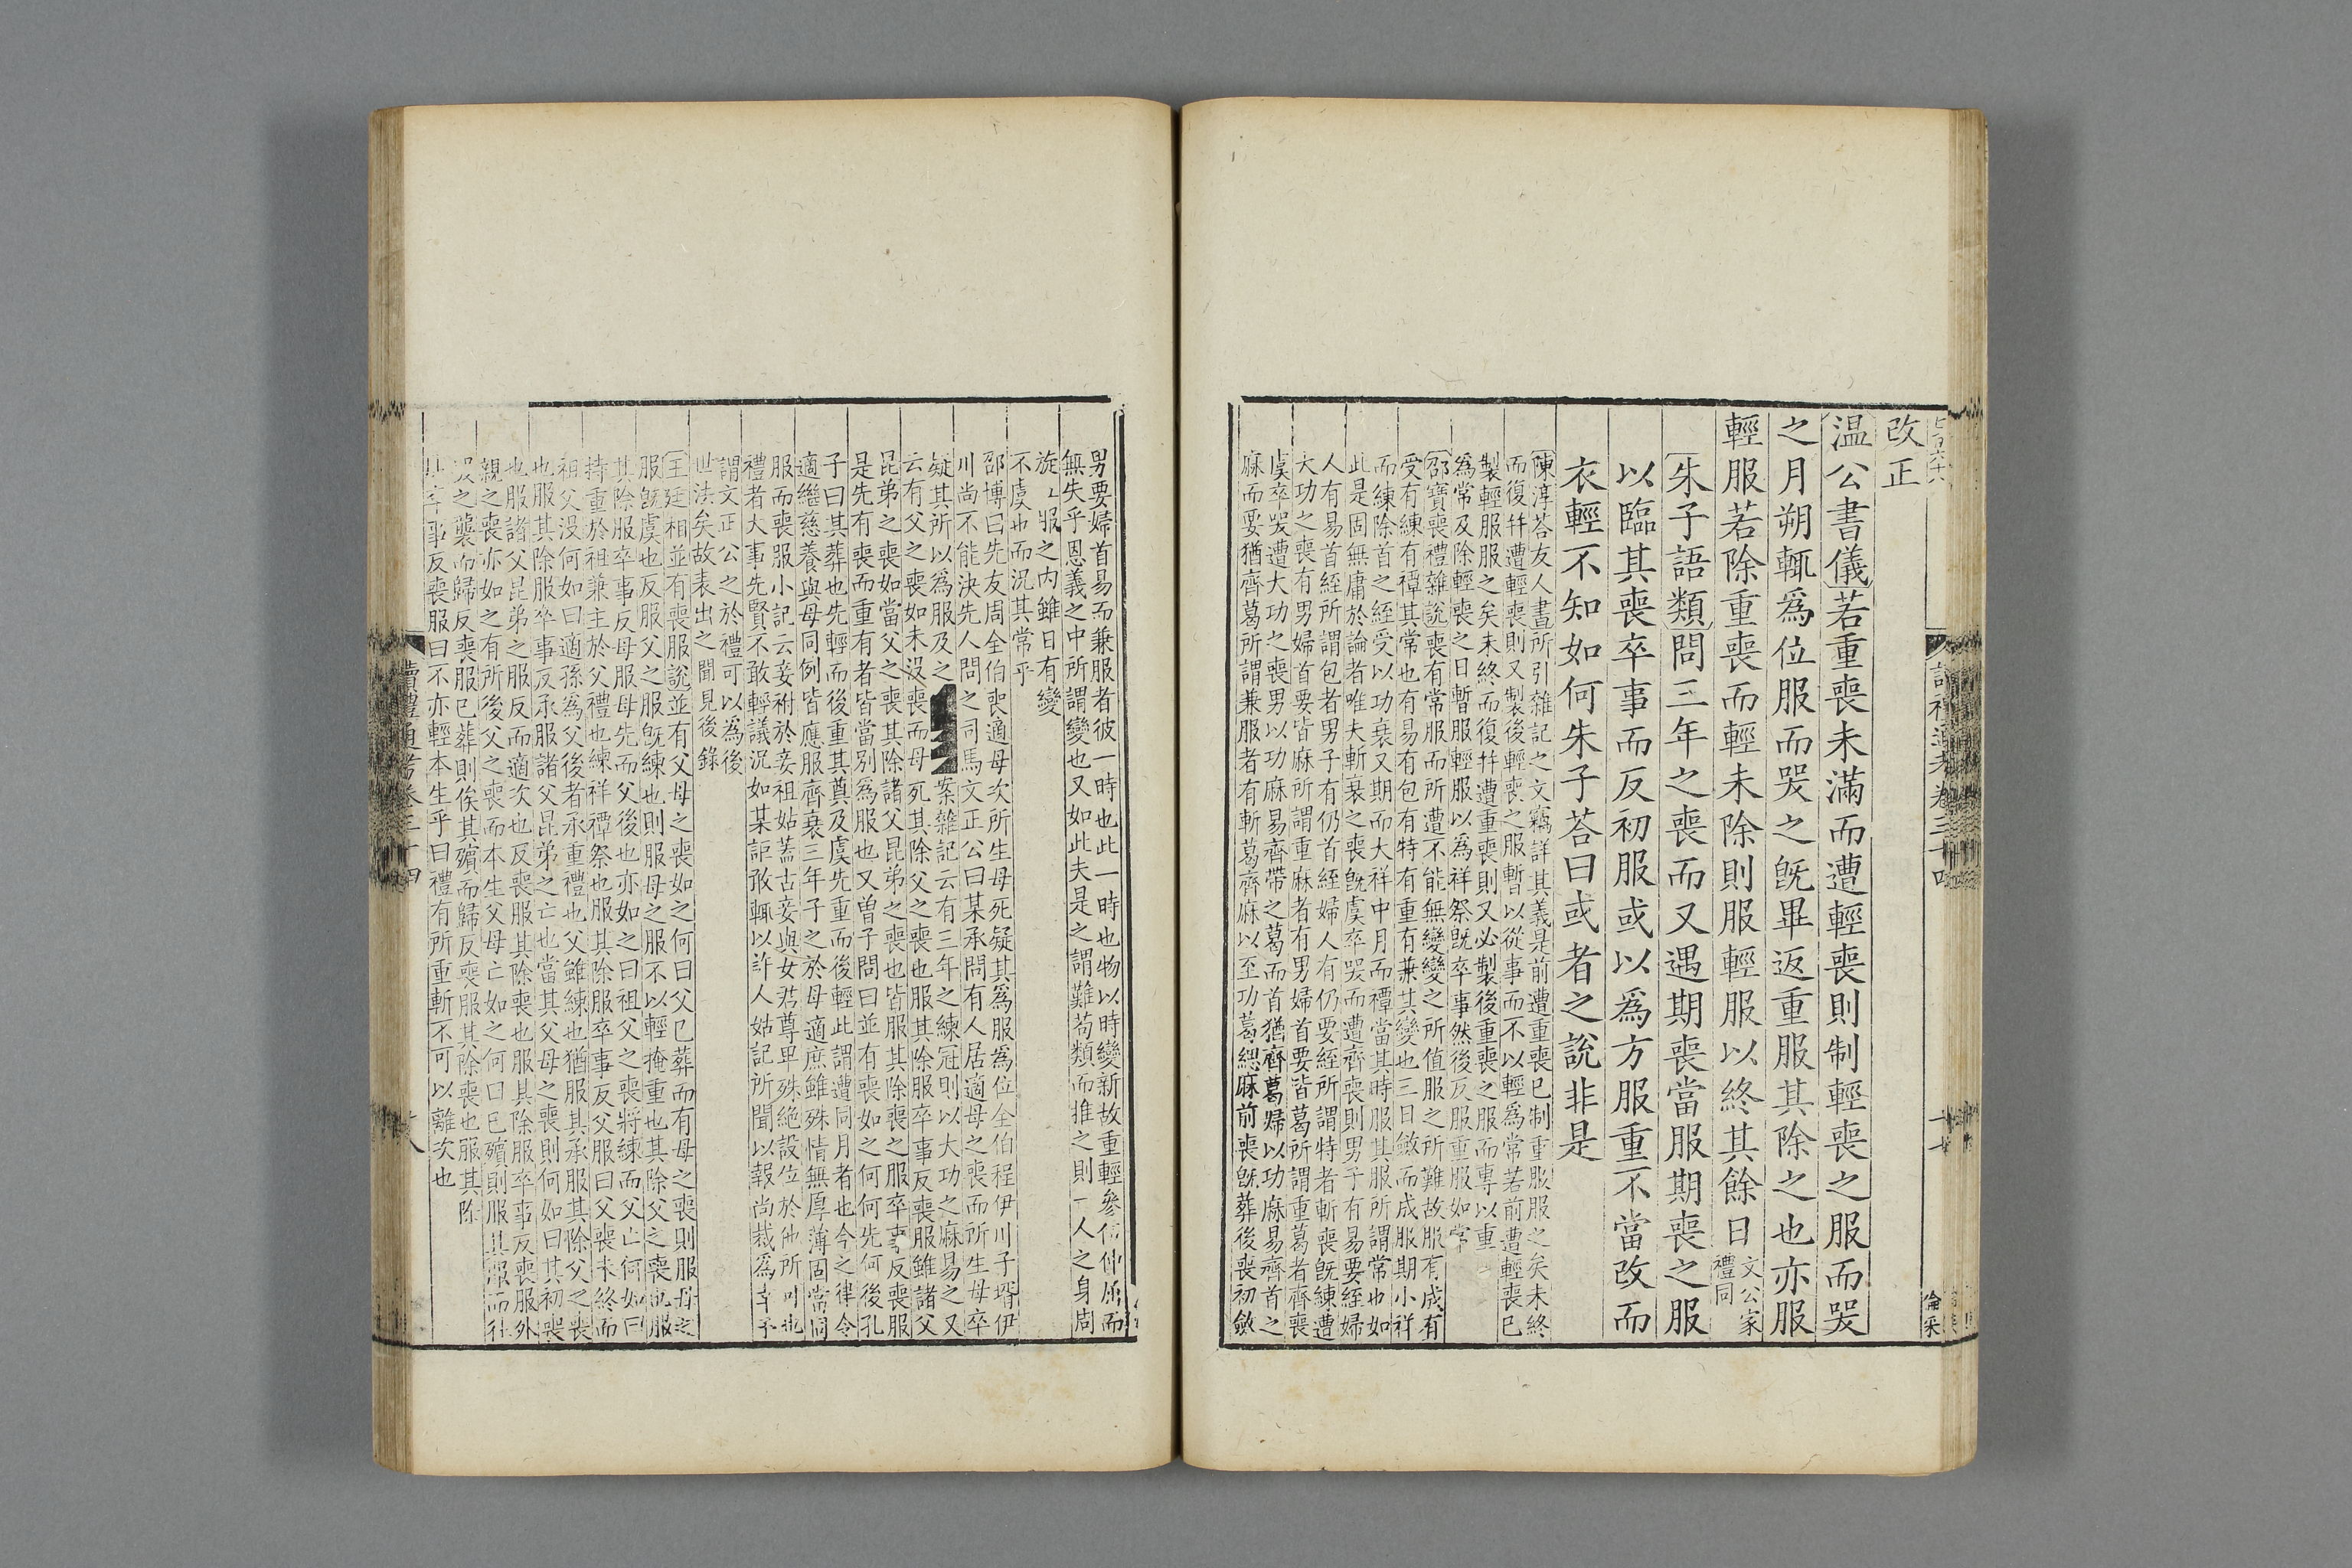 改正
温公書儀若重喪未滿而遭輕喪則制輕喪之服而哭
之月朔輒爲位服而哭之旣畢返重服其除之也亦服
輕服若除重喪而輕未除則服輕服以終其餘日文公家
禮同
朱子語類問三年之喪而又遇期喪當服期喪之服
以臨其喪卒事而反初服或以爲方服重不當改而
衣輕不知如何朱子荅曰或者之說非是
陳淳荅友人書所引雜記之文竊詳其義是前遭重喪已制重服服之矣未終
而復幷遭輕喪則又製後輕喪之服暫以從事而不以輕爲常若前遭輕喪已
製輕服服之矣未終而復幷遭重喪則又必製後重喪之服而專以重
爲常及除輕喪之日暫服輕服以爲祥祭旣卒事然後反服重服如常
邵寶喪禮雜說喪有常服而所遭不能無變變之所值服之所難故服有成有
受有練有禫其常也有易有包有特有重有兼其變也三日斂而成服期小祥
而練除首之絰受以功衰又期而大祥中月而禫當其時服其服所謂常也如
此是固無庸於論者唯夫斬衰之喪旣虞卒哭而遭齊喪則男子有易要絰婦
人有易首絰所謂包者男子有仍首絰婦人有仍要絰所謂特者斬喪旣練遭
大功之喪有男婦首要皆麻所謂重麻者有男婦首要皆葛所謂重葛者齊喪
虞卒哭遭大功之喪男以功麻易齊帶之葛而首猶齊葛婦以功麻易齊首之
麻而要猶齊葛所謂兼服者有斬葛齊麻以至功葛緦麻前喪旣葬後喪初斂
讀禮通考卷三十四
十七
男要婦首易而兼服者彼一時也此一時也物以時變新故重輕參伍伸屈而
無失乎恩義之中所謂變也又如此夫是之謂難苟類而推之則一人之身周
旋五服之內雖日有變
不虞也而況其常乎
邵博曰先友周全伯喪適母次所生母死疑其爲服爲位全伯程伊川子壻伊
川尚不能決先人問之司馬文正公曰某承問有人居適母之喪而所生母卒
疑其所以爲服及之案雜記云有三年之練冠則以大功之麻易之又
云有父之喪如未沒喪而母死其除父之喪也服其除服卒事反喪服雖諸父
昆弟之喪如當父之喪其除諸父昆弟之喪也皆服其除喪之服卒事反喪服
是先有喪而重有者皆當別爲服也又曾子問曰並有喪如之何何先何後孔
子曰其葬也先輕而後重其奠及虞先重而後輕此謂遭同月者也今之律令
適繼慈養與母同例皆應服齊衰三年子之於母適庶雖殊情無厚薄固當同
服而喪服小記云妾祔於妾祖姑蓋古妾與女君尊卑殊絶設位於他所可也
禮者大事先賢不敢輕議況如某詎敢輒以許人姑記所聞以報尚裁爲幸予
謂文正公之於禮可以爲後
世法矣故表出之聞見後錄
王廷相並有喪服說並有父母之喪如之何曰父已葬而有母之喪則服母之
服旣虞也反服父之服旣練也則服母之服不以輕掩重也其除父之喪也服
其除服卒事反母服母先而父後也亦如之曰祖父之喪將練而父亡何如曰
持重於祖兼主於父禮也練祥禫祭也服其除服卒事反父服曰父喪未終而
祖父没何如曰適孫爲父後者承重禮也父雖練也猶服其承服其除父之喪
也服其除服卒事反承服諸父昆弟之亡也當其父母之喪則何如曰其初喪
也服諸父昆弟之服反而適次也反喪服其除喪也服其除服卒事反喪服外
親之喪亦如之有所後父之喪而本生父母亡如之何曰已殯則服其服而往
哭之襲而歸反喪服已葬則俟其殯而歸反喪服其除喪也服其除
服卒事反喪服曰不亦輕本生乎曰禮有所重斬不可以離次也
讀禮通考卷三十四
十八